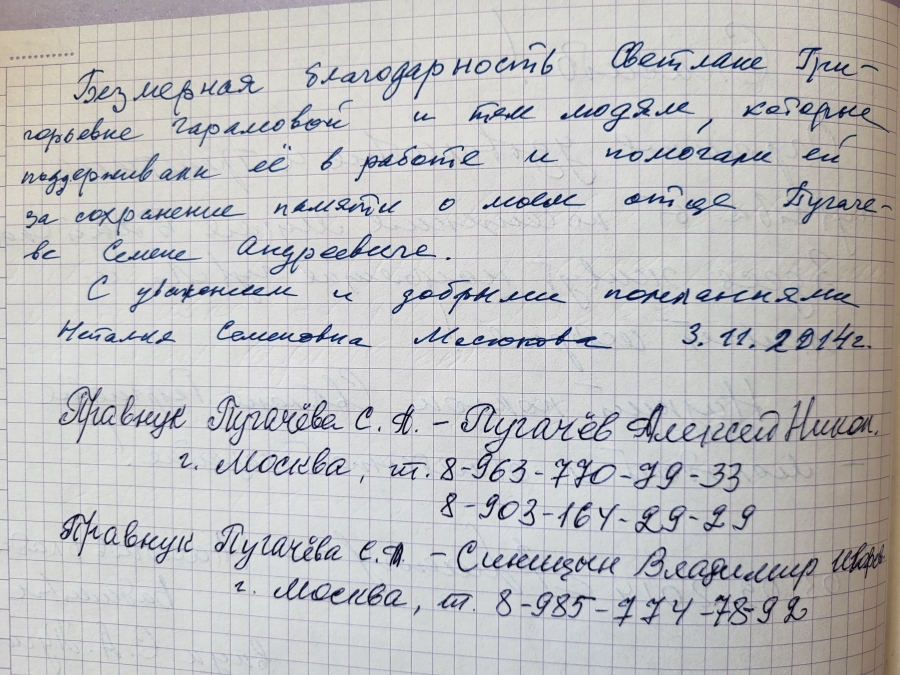 Безмерная благодарность Светлане Гри-
горьевне Гарамовой и тем людям, которые
поддерживали её в работе и помогали ей
за сохранение памяти о моем отце Пугаче-
ве Семене Андреевиче.
С уважением и добрыми пожеланиями
Наталья Семеновна Месюкова 3.11.2014г.
Правнук Пугачёва С. А. - Пугачёв Алексей Никол.
г. Москва, т. 8-963-770-79-33
8-903-164-29-29
Правнук Пугачёва С.А. - Синицын Владимир
г. Москва, т. 8-985-774-78-92